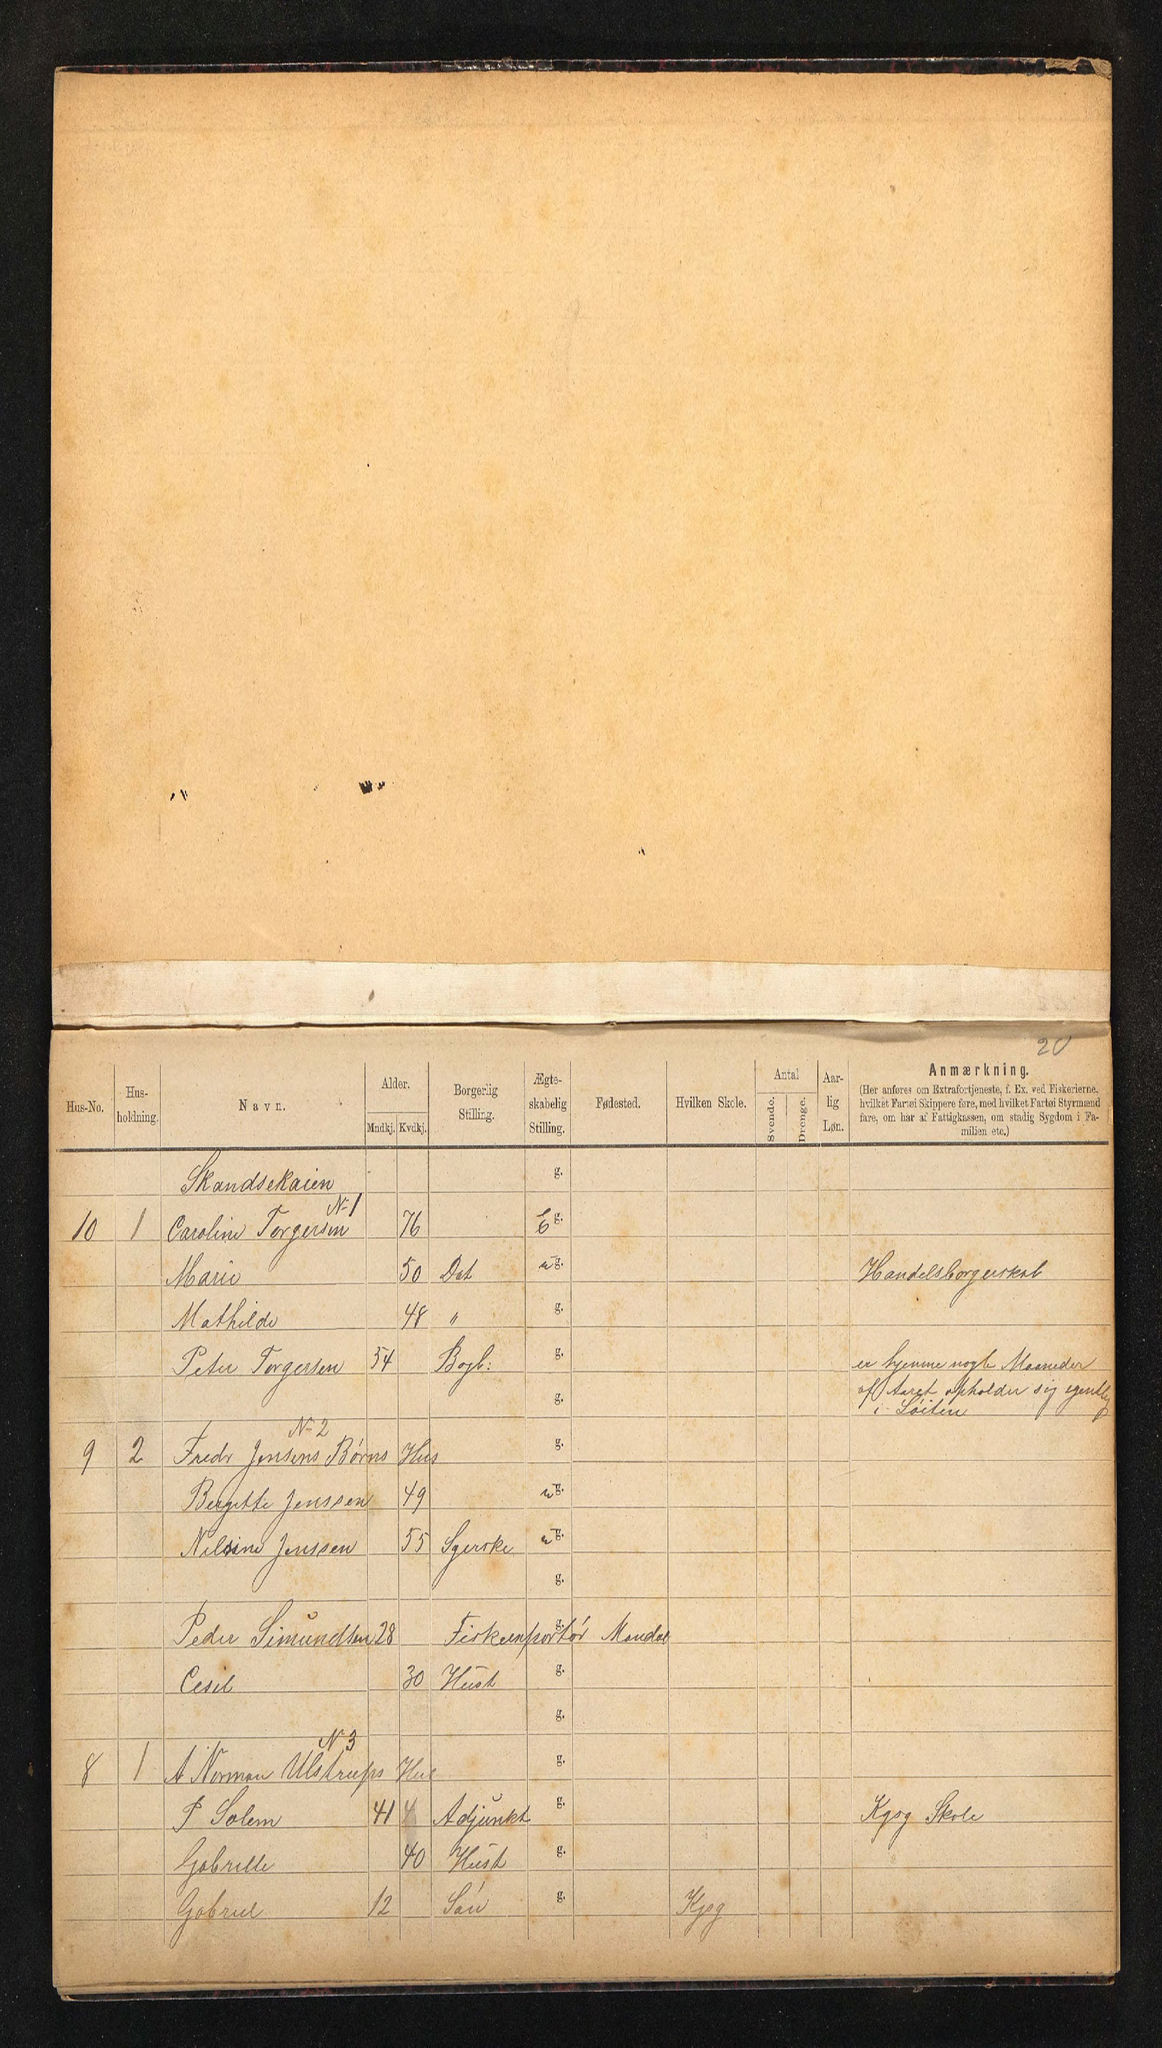 20
Hus-No. Hus-holdning. Navn. Alder. Mndkj. Kvdkj. Borgerlig Stilling. Ægte-skabelig Stilling. Fødested. Hvilken Skole. Antal Svende. Drenge. Aar-lig Løn. Anmærkning.
(Her anføres om Extrafortjeneste, f. Ex. ved Fiskerierne, hvilket Fartøi Skippere føre, med hvilket Fartøi Styrmænd fare, om har af Fattigkassen, om stadig Sygdom i Familien etc.)
Skandsekaien g.
N-1
10 1 Caroline Torgersen 76 E g.
Marie 50 Dat u g. Handelsborgerskab
Mathilde 48 " g.
Peter Torgersen 54 Bogh: g. er hjemme nogle Maaneder
g. af Aaret opholder sig egentlig
i
N-2
9 2 Fredr Jensens Børns Hus g.
Bergitte Jenssen 49 u g.
Nilsine Jenssen 55 Syerske u g.
g.
Peder Simundsen 28 Fiskeexportør g. Mandal
Cesil 30 Hust g.
g.
N 3
8 1 A Norman Ulstrups Hus g.
P Solem 41 4 Adjunkt g. Kgsg Skole
Gabrille 40 Hust g.
Gabriel 12 Søn g. Kgsg